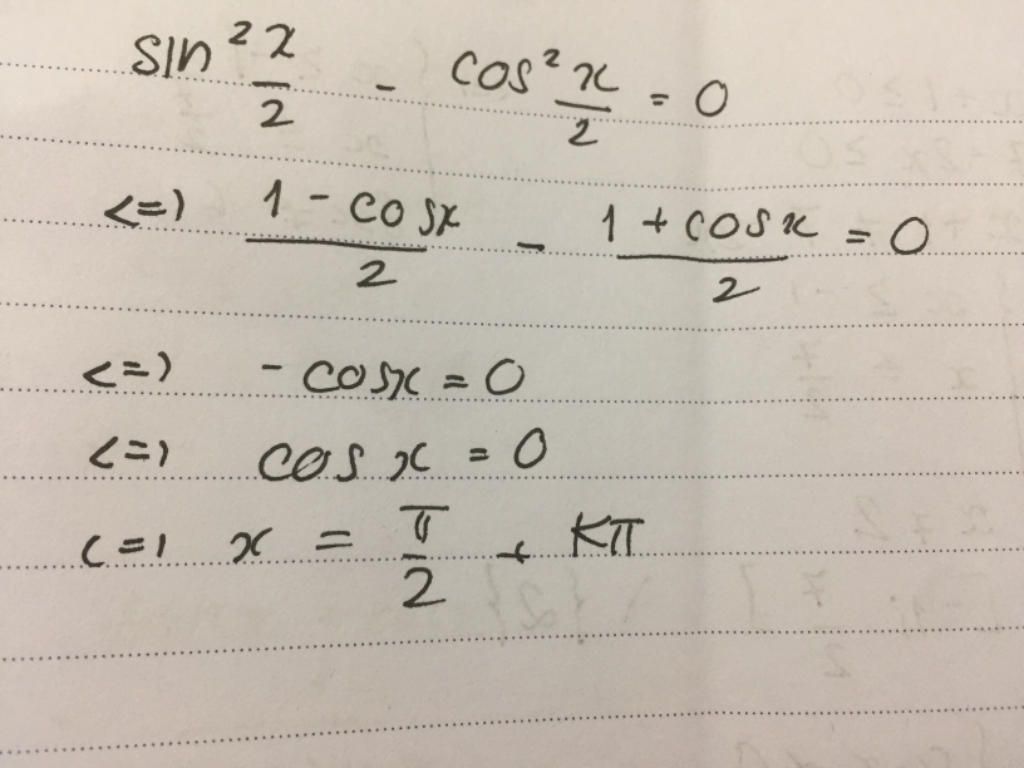 sin² x/2 - cos² x/2 = 0
<=> (1 - cosx)/2 - (1 + cosx)/2 = 0
<=> - cosx = 0
<=> cos x = 0
<=> x = π/2 + Kπ